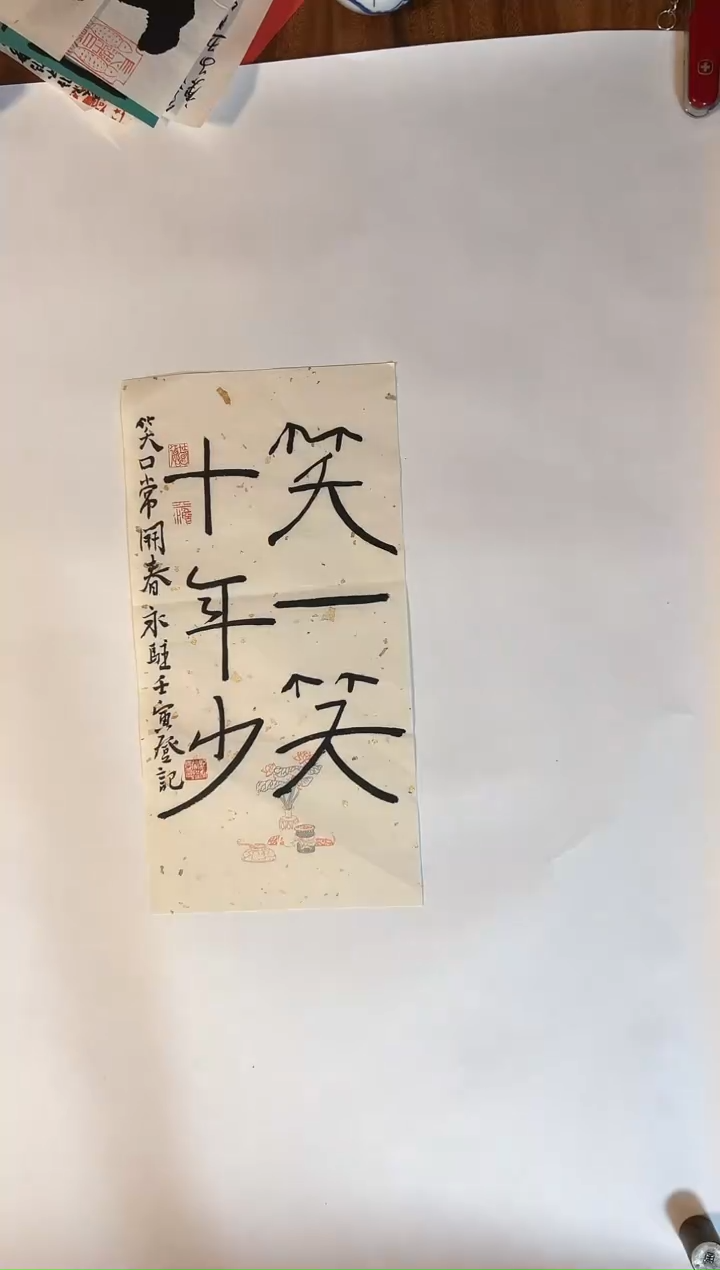 笑一笑
十年少
笑口常開春永駐壬寅登記